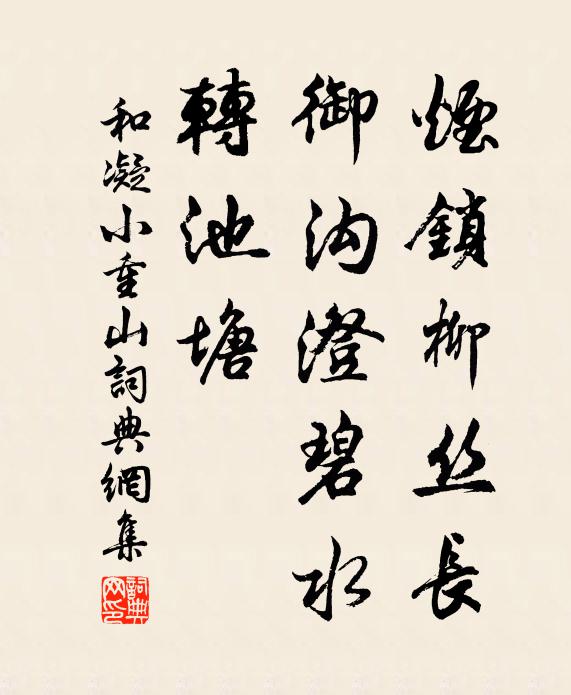 煙鎖柳丝長
御沟澄碧水
轉池塘
和凝小重山詞典網集
詞典網印